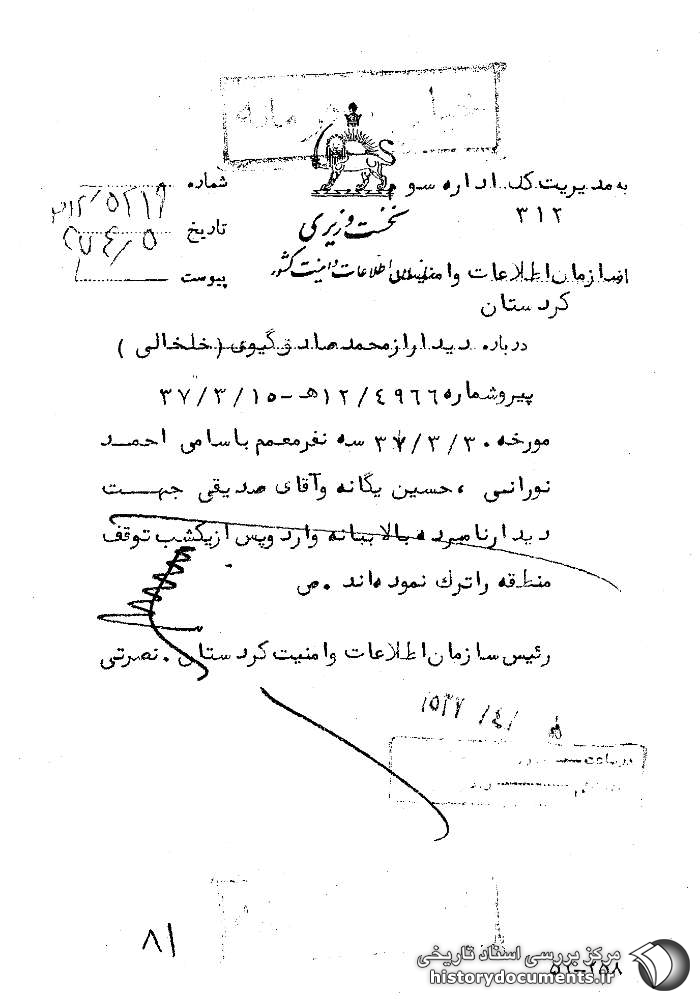 خیلی محرمانه
به مدیریت کل اداره سوم
۳۱۲
شماره
نخست وزیری
تاریخ
سازمان اطلاعات و امنیت کشور
پیوست
از سازمان اطلاعات و امنیت
کردستان
درباره دیدار از محمد صادق گیوی (خلخالی)
پیرو شماره ۱۲/۴۹۶۶ هـ - ۳۷/۳/۱۵
مورخه ۳۷/۳/۳۰ سه نفر معمم باسامی احمد
نورانی ، حسین یگانه و آقای صدیقی جهت
دیدار نامبرده بالا ببانه وارد و پس از یکشب توقف
منطقه را ترک نموده اند . ص
رئیس سازمان اطلاعات و امنیت کردستان . نصرتی
۸۱
مرکز بررسی اسناد تاریخی
historydocuments.ir